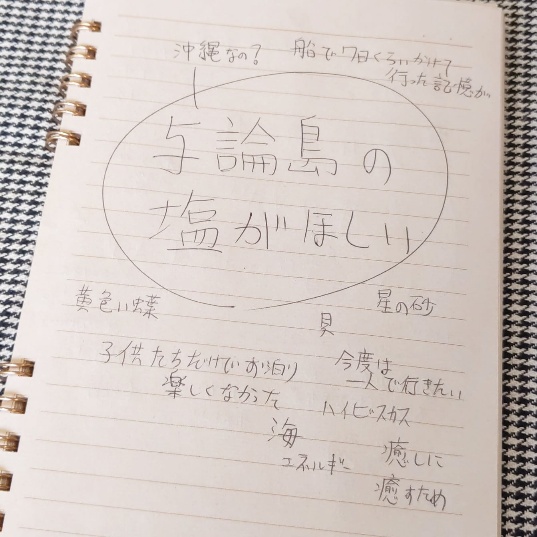 沖縄なの?
船で7日くらいかけて
行った記憶が
与論島の
塩がほしい
黄色い蝶
貝
星の砂
子供たちだけでお泊り
楽しくなかった
今度は
一人で行きたい
ハイビスカス
海
エネルギー
癒しに
癒すため